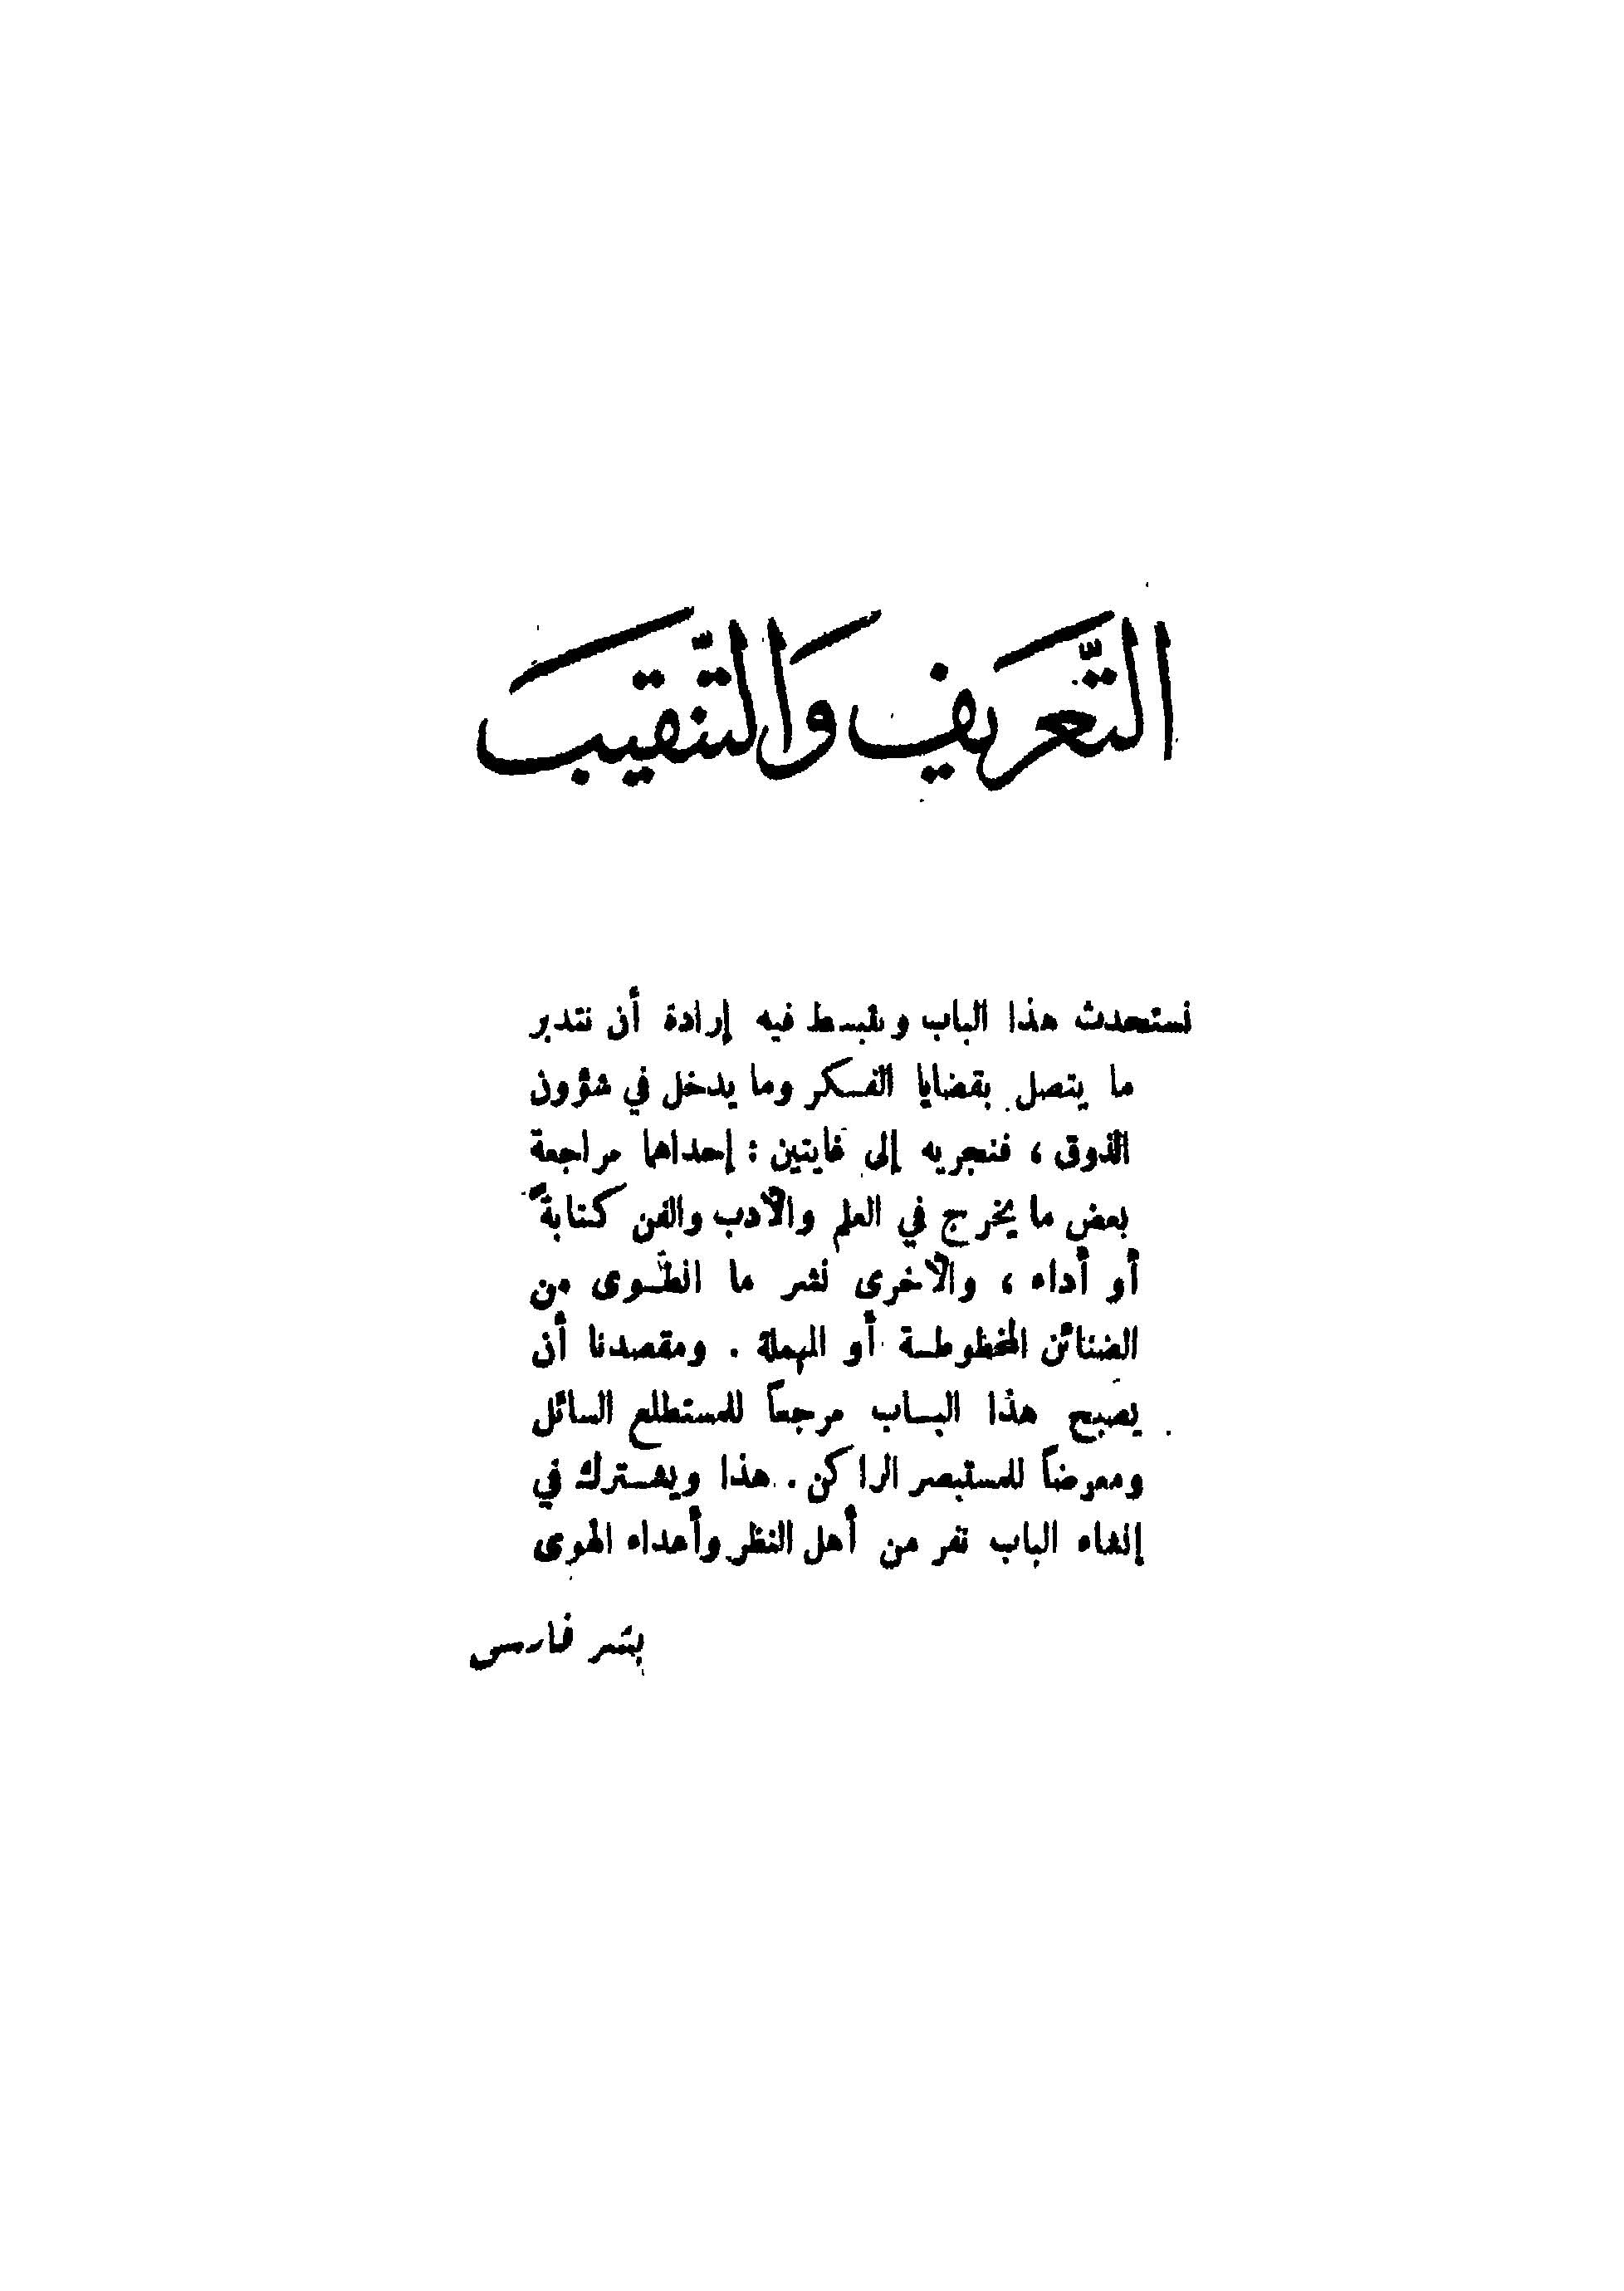 التَّعريف وَالتَّنقيب
نستحدث هذا الباب ونبسط فيه إرادة أن نتدبر
ما يتصل بقضايا الفكر وما يدخل في شؤون
الذوق ، فنجريه إلى غايتين : إحداهما مراجعة
بعض ما يخرج في العلم والأدب والفن كتابةً
أو أداء ، والأخرى نشر ما انطوى من
الضنائن المخطوطة أو المهملة . ومقصدنا أن
يصبح هذا الباب مرجعاً للمستطلع السائل
ومعرضاً للمستبصر الراكن . هذا ويشترك في
إنشاء الباب نفر من أهل النظر وأعداء الهوى
بشر فارسى